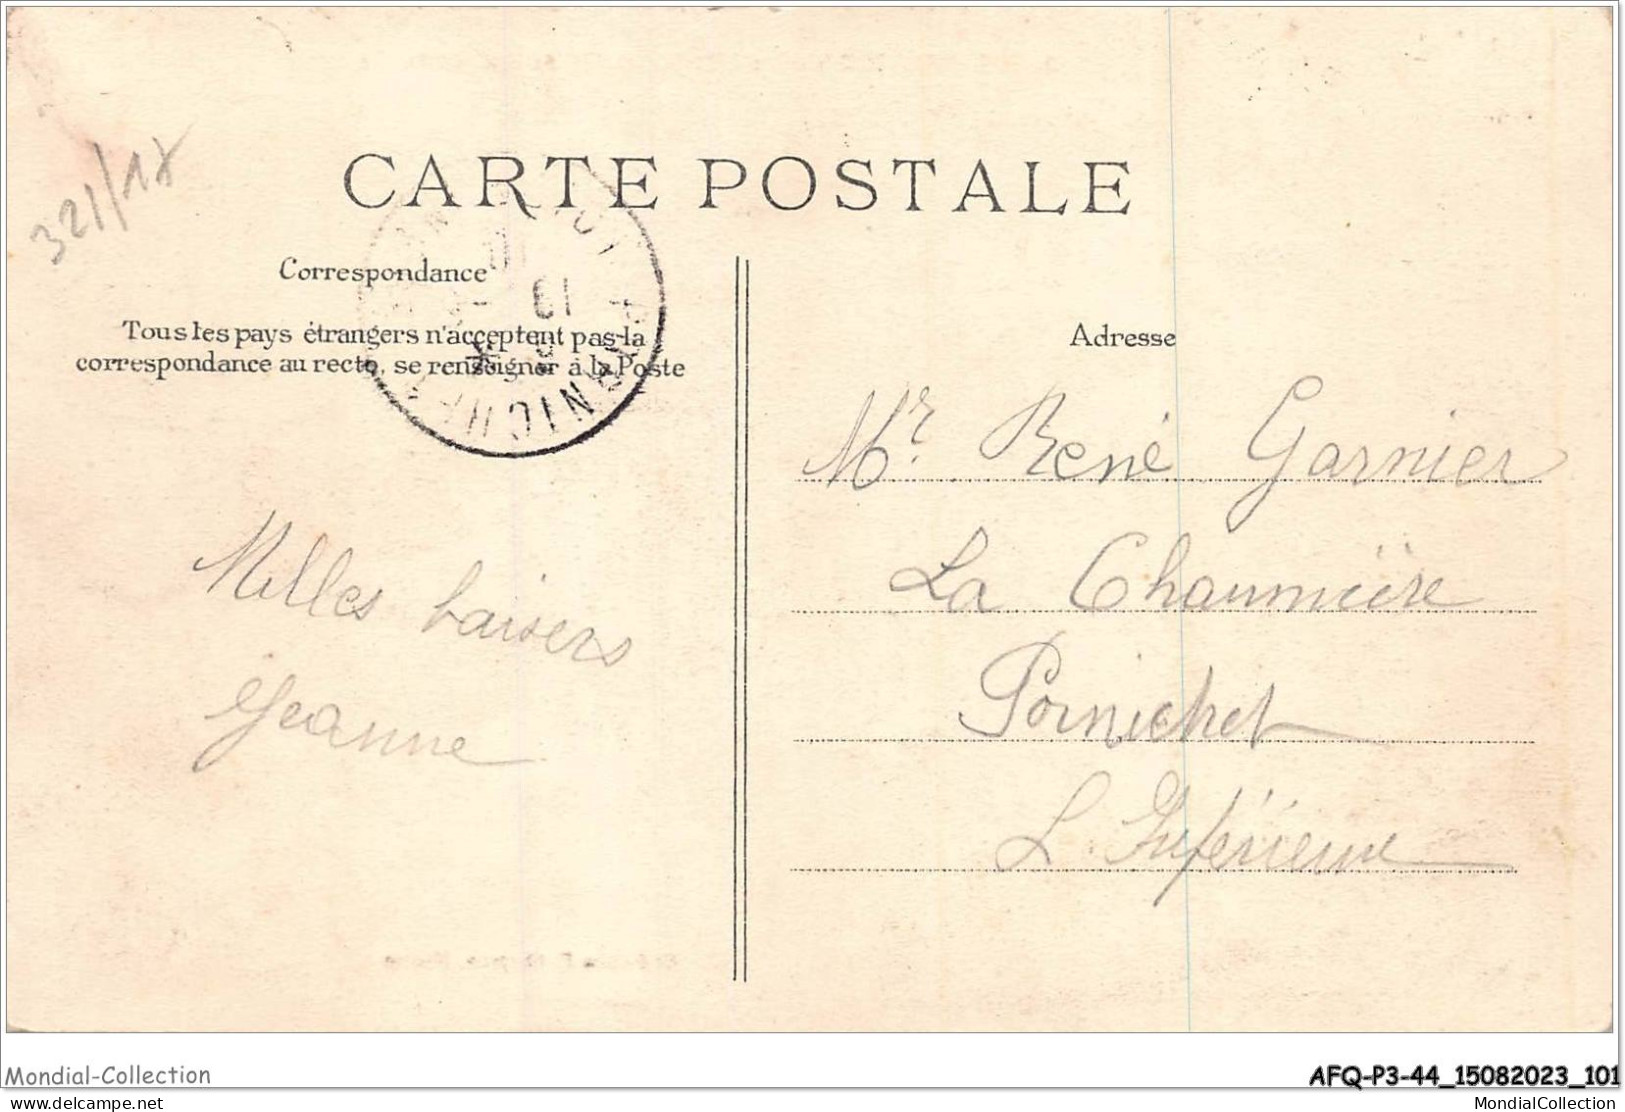 321/18
CARTE POSTALE
Correspondance
Tous les pays étrangers n'acceptent pas la
correspondance au recto, se renseigner à la Poste
Adresse
Mr. René Garnier
La Chaumière
Pornichet
L. Inférieure
Milles baisers
Jeanne
PORNICHET
Mondial-Collection
AFQ-P3-44_15082023_101
www.delcampe.net
MondialCollection